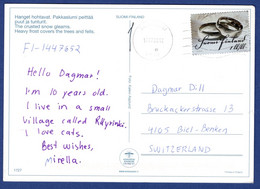 Hanget hohtavat. Pakkaslumi peittää
puut ja tunturit.
The crusted snow gleams.
Heavy frost covers the trees and fells.
SUOMI-FINLAND
FI-1447652
Hello Dagmar!
I'm 10 years old.
I live in a small
village called
I love cats.
Best wishes,
Mirella.
Suomi Finland
Dagmar Dill
Bruckackerstrasse 13
4105 Biel-Benken
SWITZERLAND